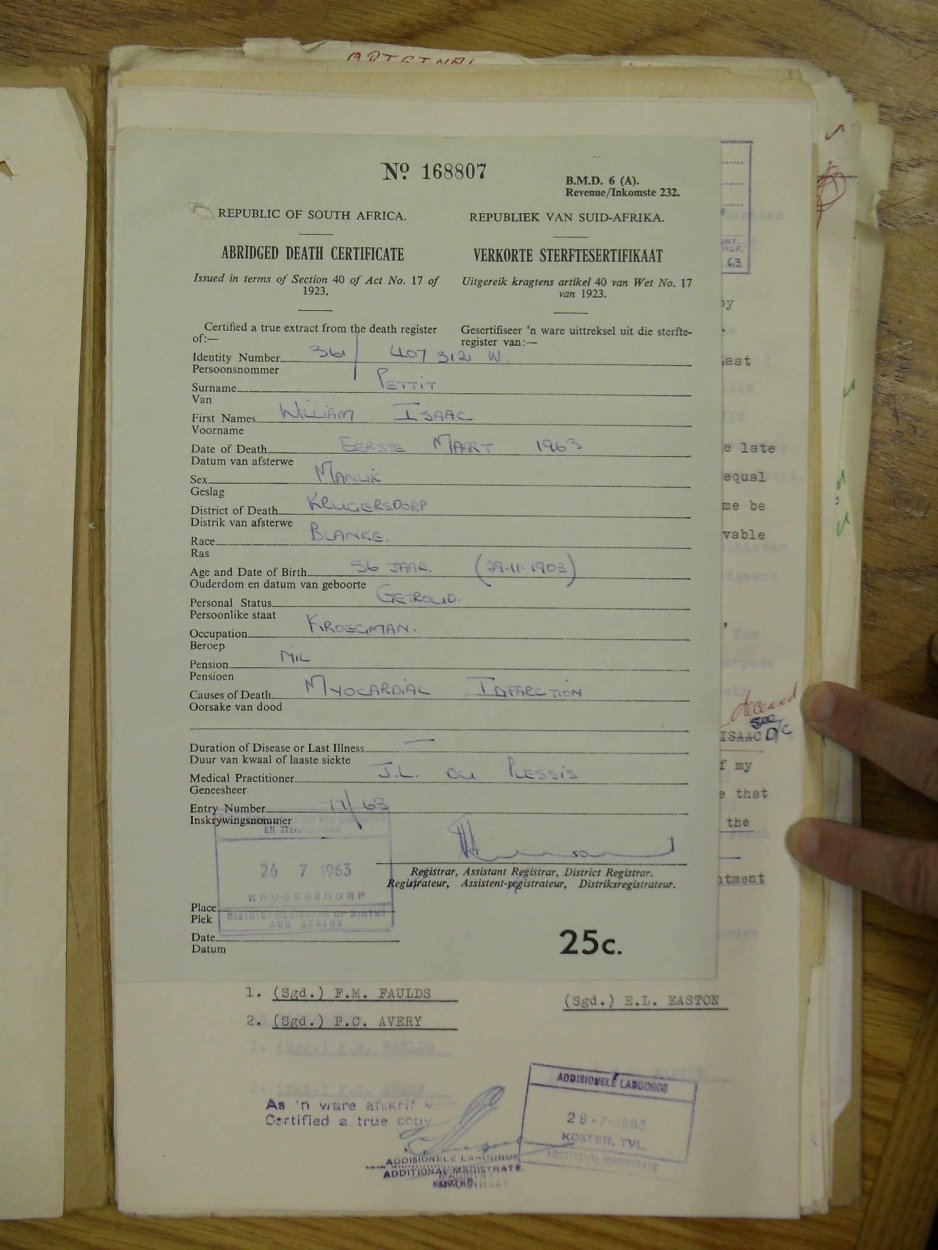 ORIGINAL
No 168807
B.M.D. 6 (A).
Revenue/Inkomste 232.
REPUBLIC OF SOUTH AFRICA.
REPUBLIEK VAN SUID-AFRIKA.
ABRIDGED DEATH CERTIFICATE
VERKORTE STERFTESERTIFIKAAT
Issued in terms of Section 40 of Act No. 17 of
1923.
Uitgereik kragtens artikel 40 van Wet No. 17
van 1923.
Certified a true extract from the death register
of:—
Gesertifiseer 'n ware uittreksel uit die sterfte-
register van:—
Identity Number 361/407312 W.
Persoonsnommer
Surname PETTIT
Van
First Names WILLIAM ISAAC
Voorname
Date of Death EERSTE MAART 1963
Datum van afsterwe
Sex MANLIK
Geslag
District of Death KRUGERSDORP
Distrik van afsterwe
Race BLANKE.
Ras
Age and Date of Birth 56 JAAR. (29-11-1903)
Ouderdom en datum van geboorte
Personal Status GETROUD.
Persoonlike staat
Occupation KROEGMAN.
Beroep
Pension NIL
Pensioen
Causes of Death MYOCARDIAL INFARCTION
Oorsake van dood
Duration of Disease or Last Illness —
Duur van kwaal of laaste siekte
Medical Practitioner J.L. DU PLESSIS
Geneesheer
Entry Number 77/63
Inskrywingsnommer
26 7 1963
KRUGERSDORP
DISTRICT REGISTRAR OF BIRTHS
AND DEATHS
Registrar, Assistant Registrar, District Registrar.
Registrateur, Assistent-registrateur, Distriksregistrateur.
Place
Plek
Date
Datum
25c.
late
equal
me be
vable
ISAAC
f my
that
the
tment
1. (Sgd.) F.M. FAULDS
(Sgd.) E.L. EASTON
2. (Sgd.) P.C. AVERY
As 'n ware afskrif
Certified a true copy
ADDISIONELE LANDDROS
ADDITIONAL MAGISTRATE
KOSTER
ADDISIONELE LANDDROS
29-7-1963
KOSTER, TVL.
ADDITIONAL MAGISTRATE